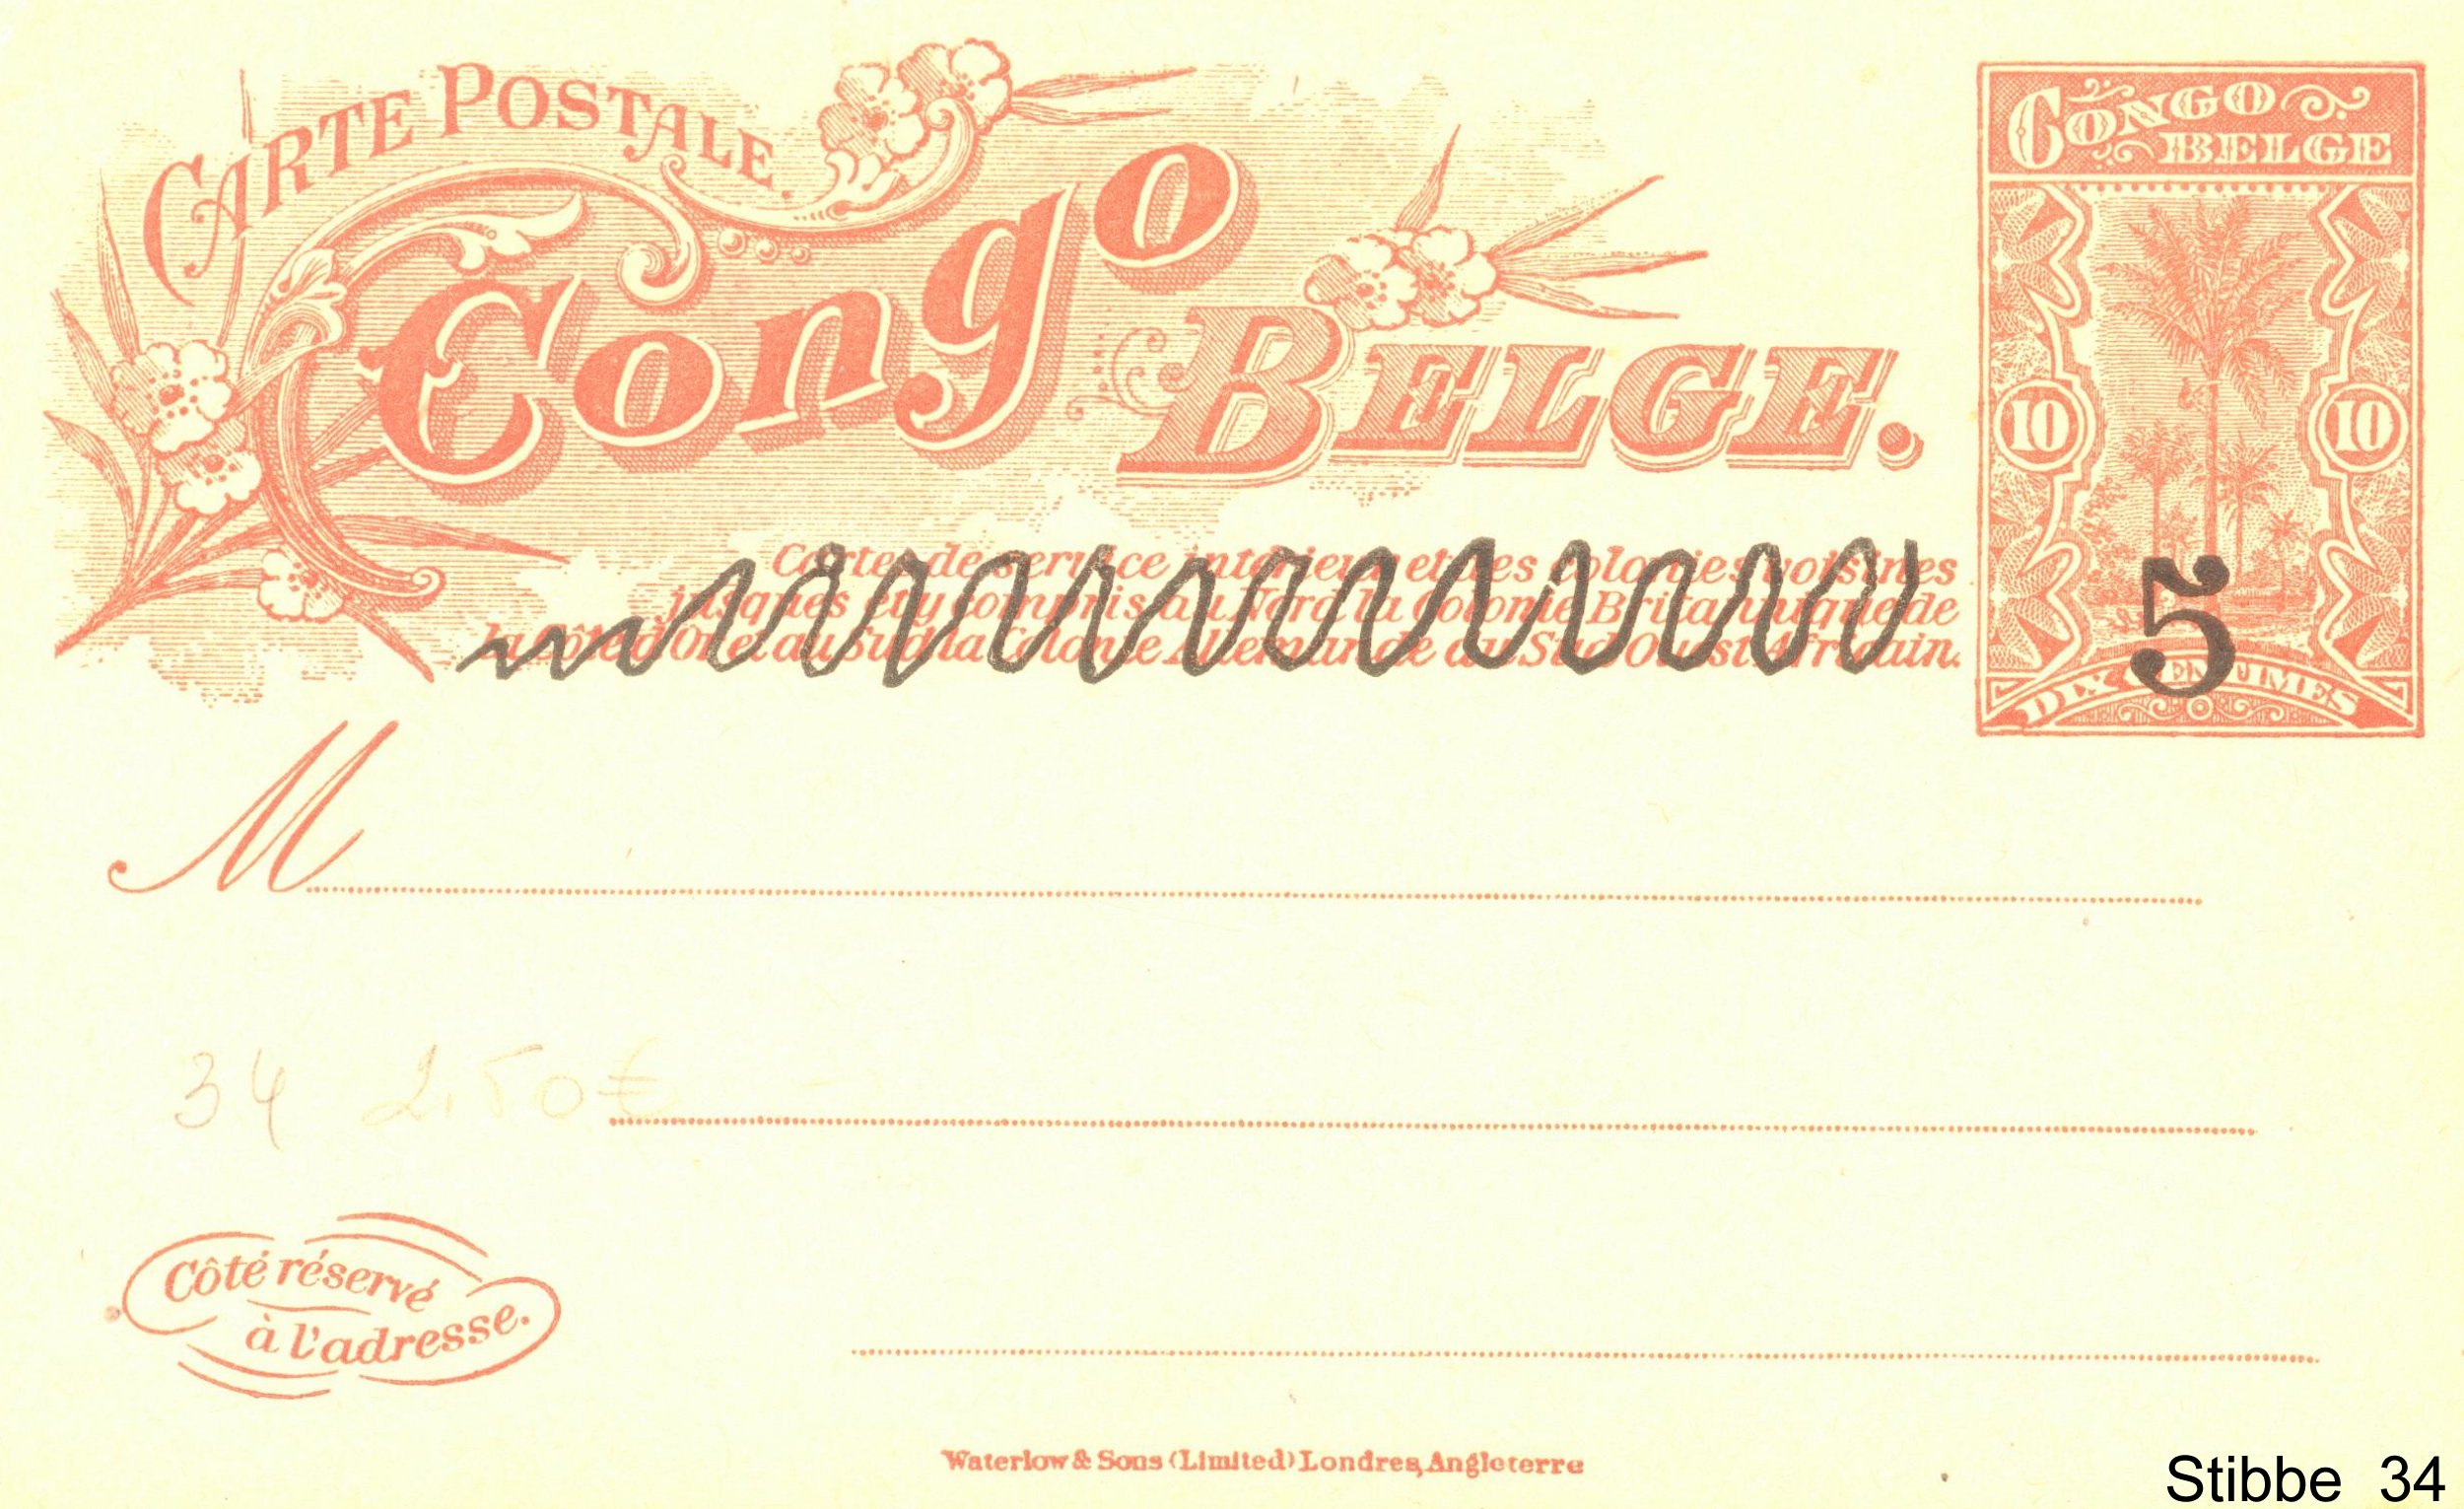 CARTE POSTALE.
Congo
BELGE.
CONGO
BELGE
10 10
5
DIX CENTIMES
Cartes de service intérieur et des colonies voisines
jusques et y compris au Nord la Colonie Britannique de
la Côte d'Or et au Sud la Colonie Allemande du Sud Ouest Africain.
M
34 2,50€
Côté réservé
à l'adresse.
Waterlow & Sons (Limited) Londres, Angleterre
Stibbe 34